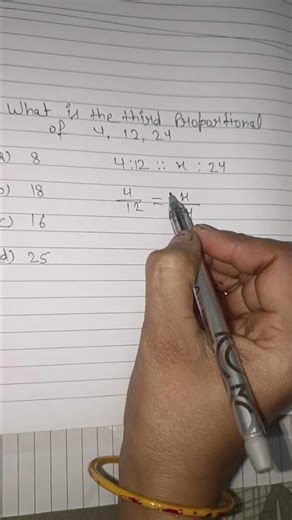 What is the third Proportional
of 4, 12, 24
a) 8
4:12 :: x : 24
b) 18
4/12 = x/
c) 16
d) 25